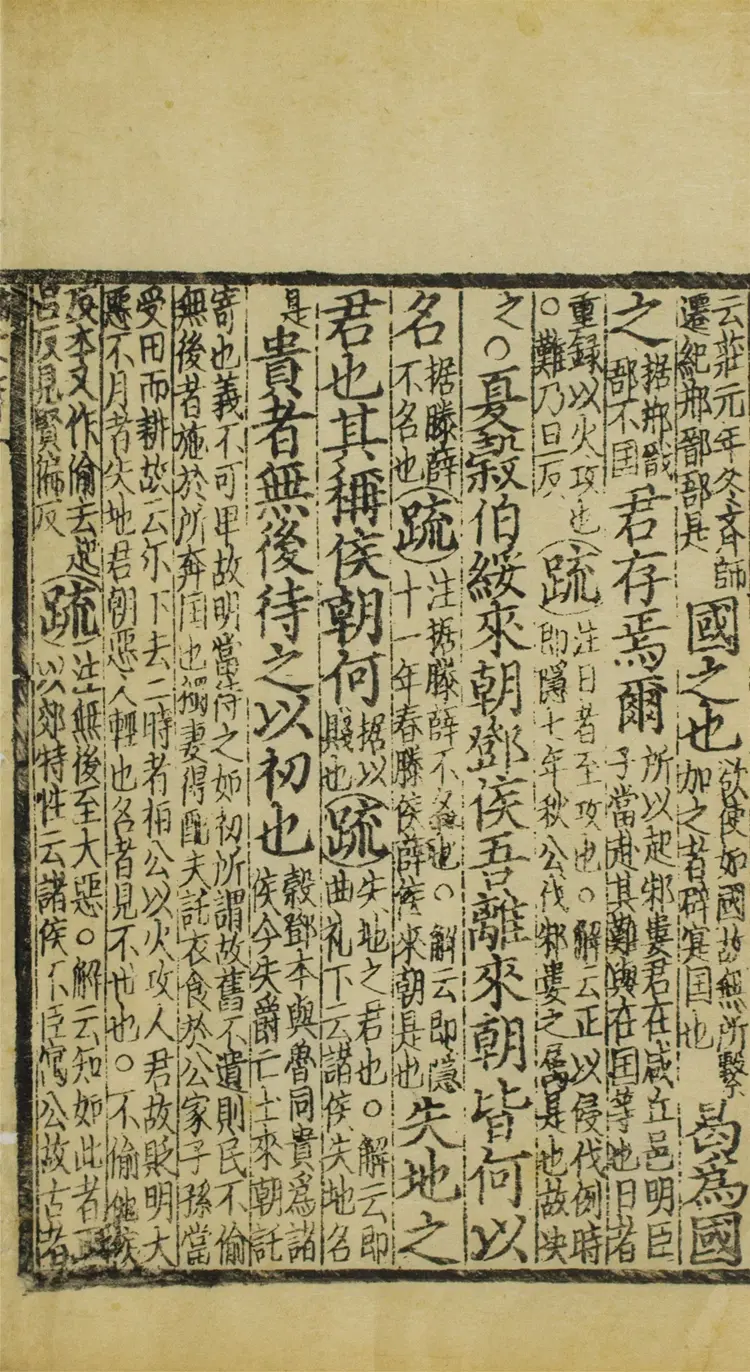 云莊元年冬齊師遷紀郱鄑郚是國之也欲使如國故無所繫加之者辟實国也曷為國
之据郱鄑郚不国君存焉爾所以起邾婁君在咸丘邑明臣子當赴其難與在国等也日者
重録以火攻也○難乃旦反疏注日者至攻也○解云正以侵伐例時即隱七年秋公伐邾婁之屬是也故决
之○夏榖伯綏來朝鄧侯吾離來朝皆何以
名据滕薛不名也疏注据滕薛不名也○解云即隱十一年春滕侯薛侯來朝是也失地之
君也其稱侯朝何据以賤也疏失地之君也○解云即曲礼下云諸侯失地名
是貴者無後待之以初也榖鄧本與魯同貴為諸侯今失爵亡土來朝託
寄也義不可卑故明當待之如初所謂故舊不遺則民不偷無後者施於所奔国也獨妻得配夫託衣食於公家子孫當
受田而耕故云尓下去二時者桓公以火攻人君故貶明大惡不月者失地君朝惡人輕也名者見不世也○不偷他侯
反本又作偷去起呂反見賢徧反疏注無後至大惡○解云知如此者正以郊特性云諸侯不臣寓公故古者